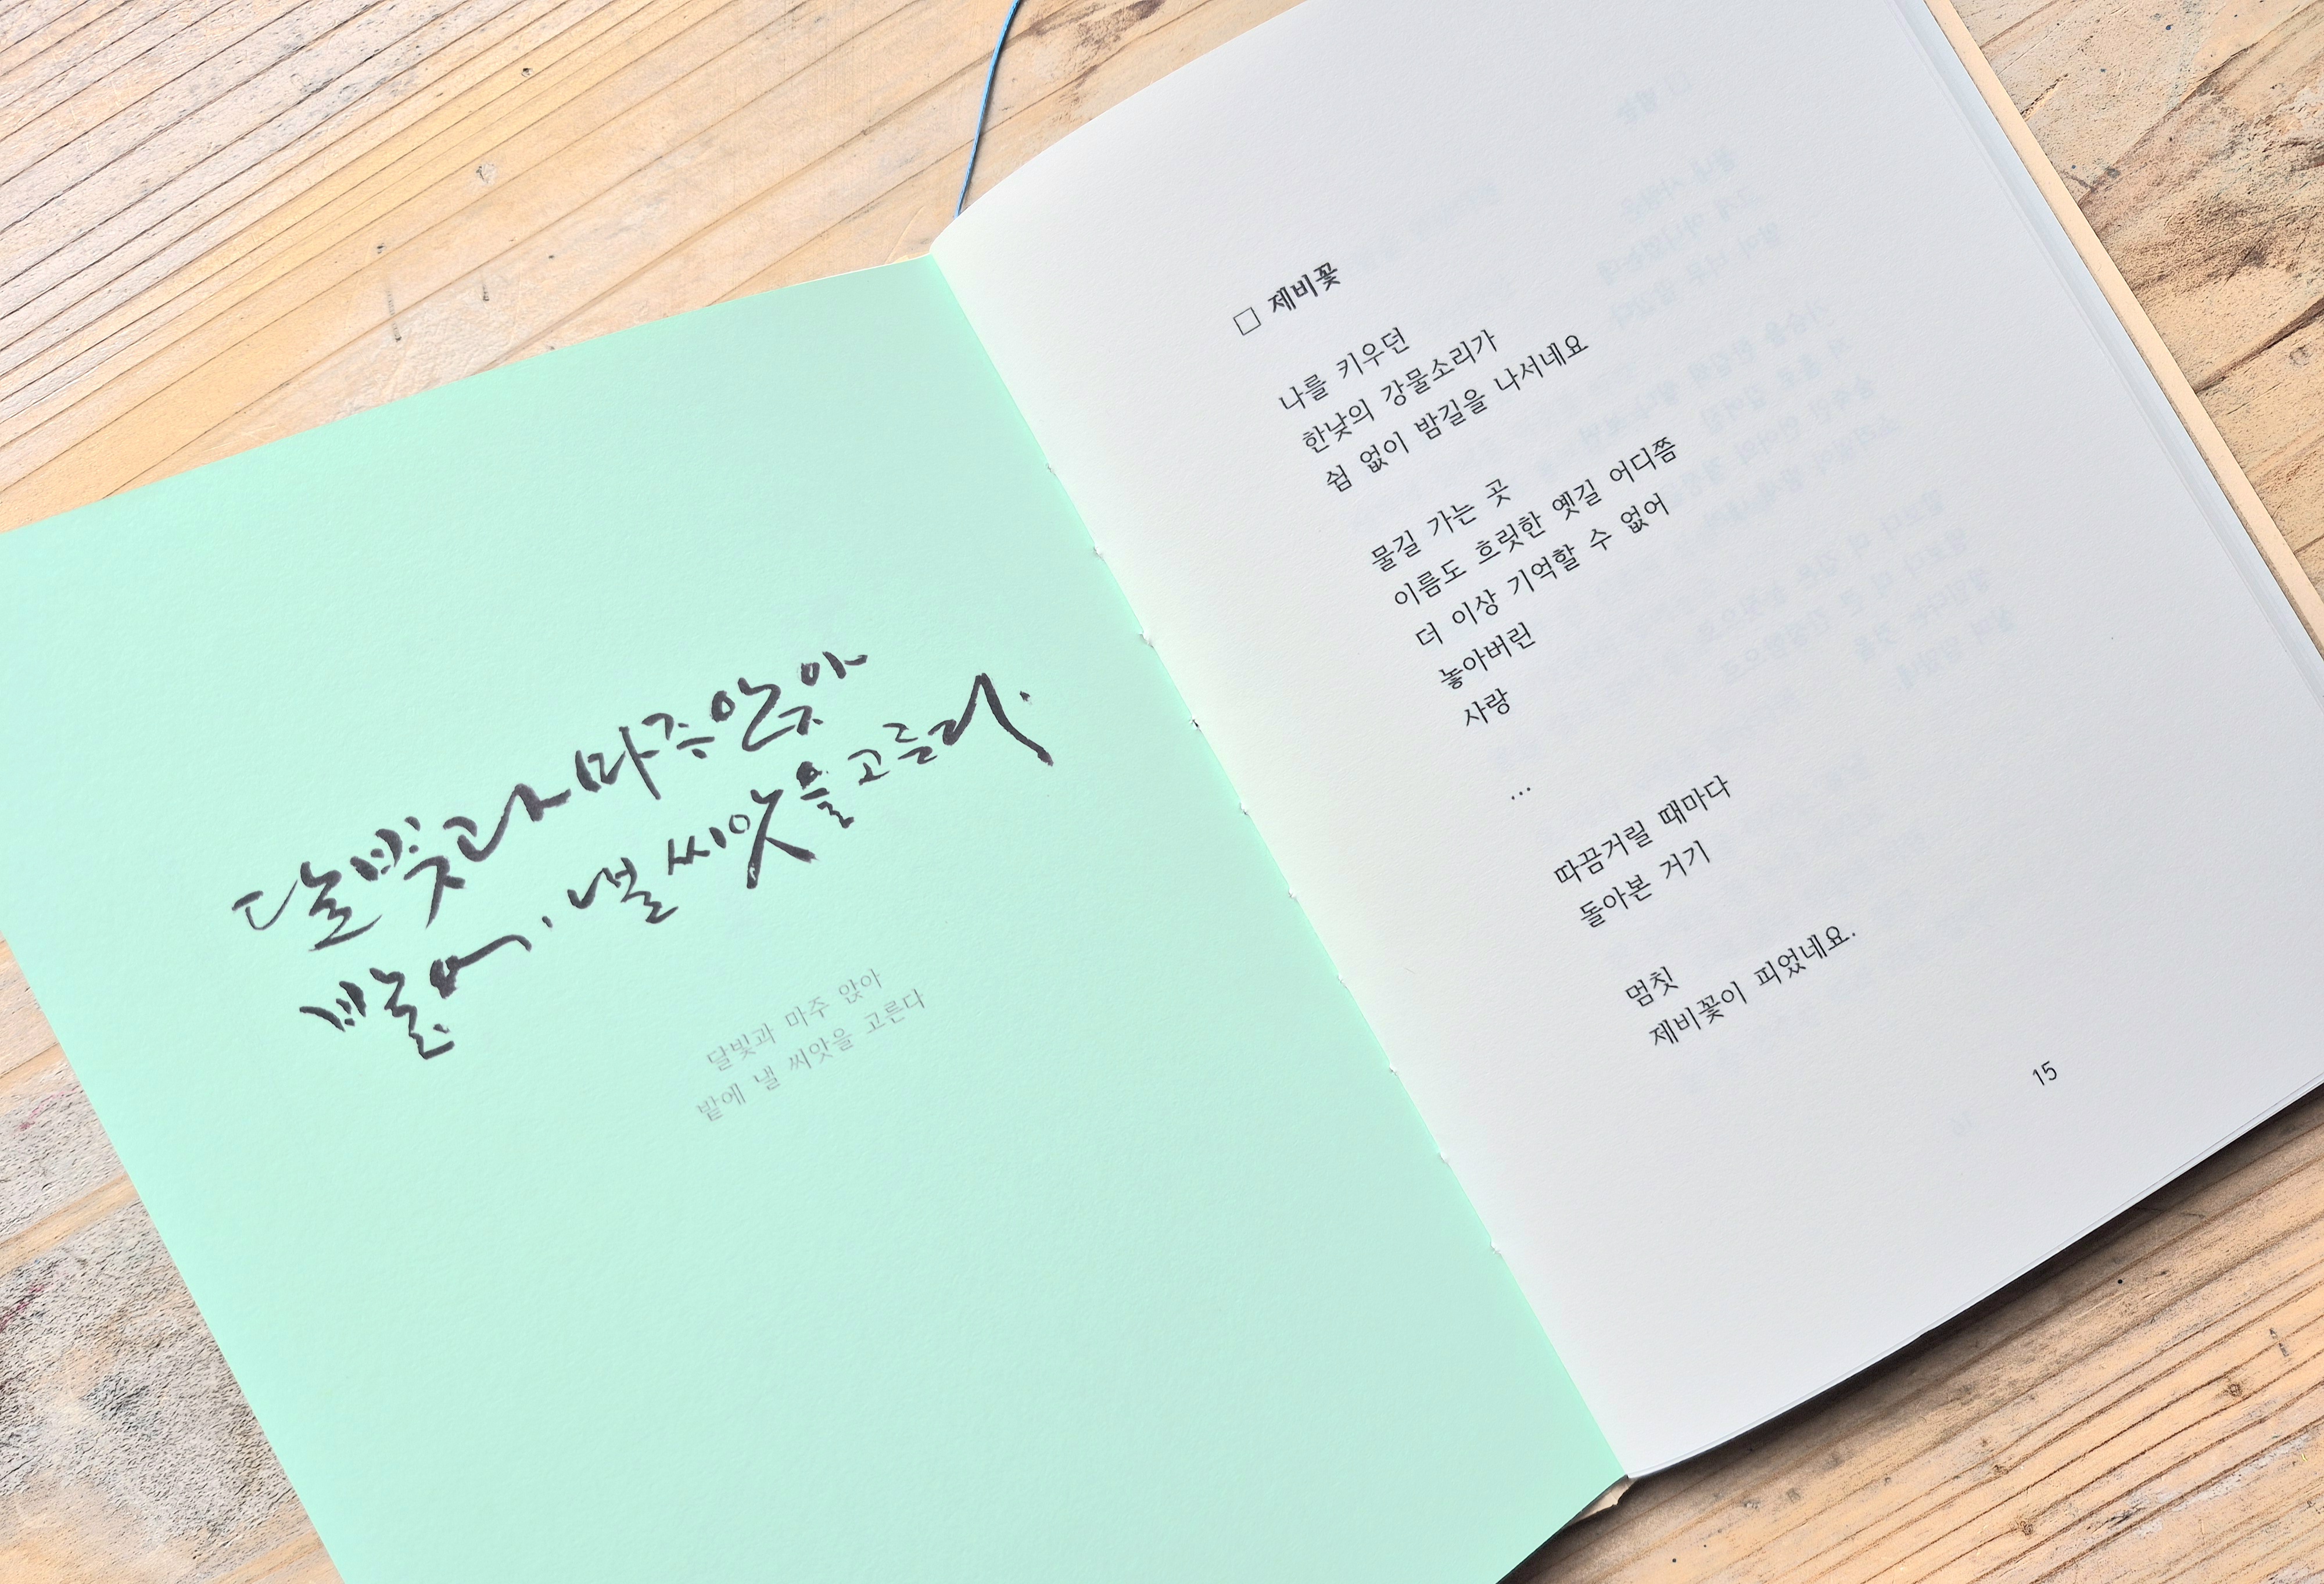 달빛과 마주 앉아
밭에, 낼 씨앗을 고른다.
달빛과 마주 앉아
밭에 낼 씨앗을 고른다
□ 제비꽃
나를 키우던
한낮의 강물소리가
쉼 없이 밤길을 나서네요
물길 가는 곳
이름도 흐릿한 옛길 어디쯤
더 이상 기억할 수 없어
놓아버린
사랑
...
따끔거릴 때마다
돌아본 거기
멈칫
제비꽃이 피었네요.
15